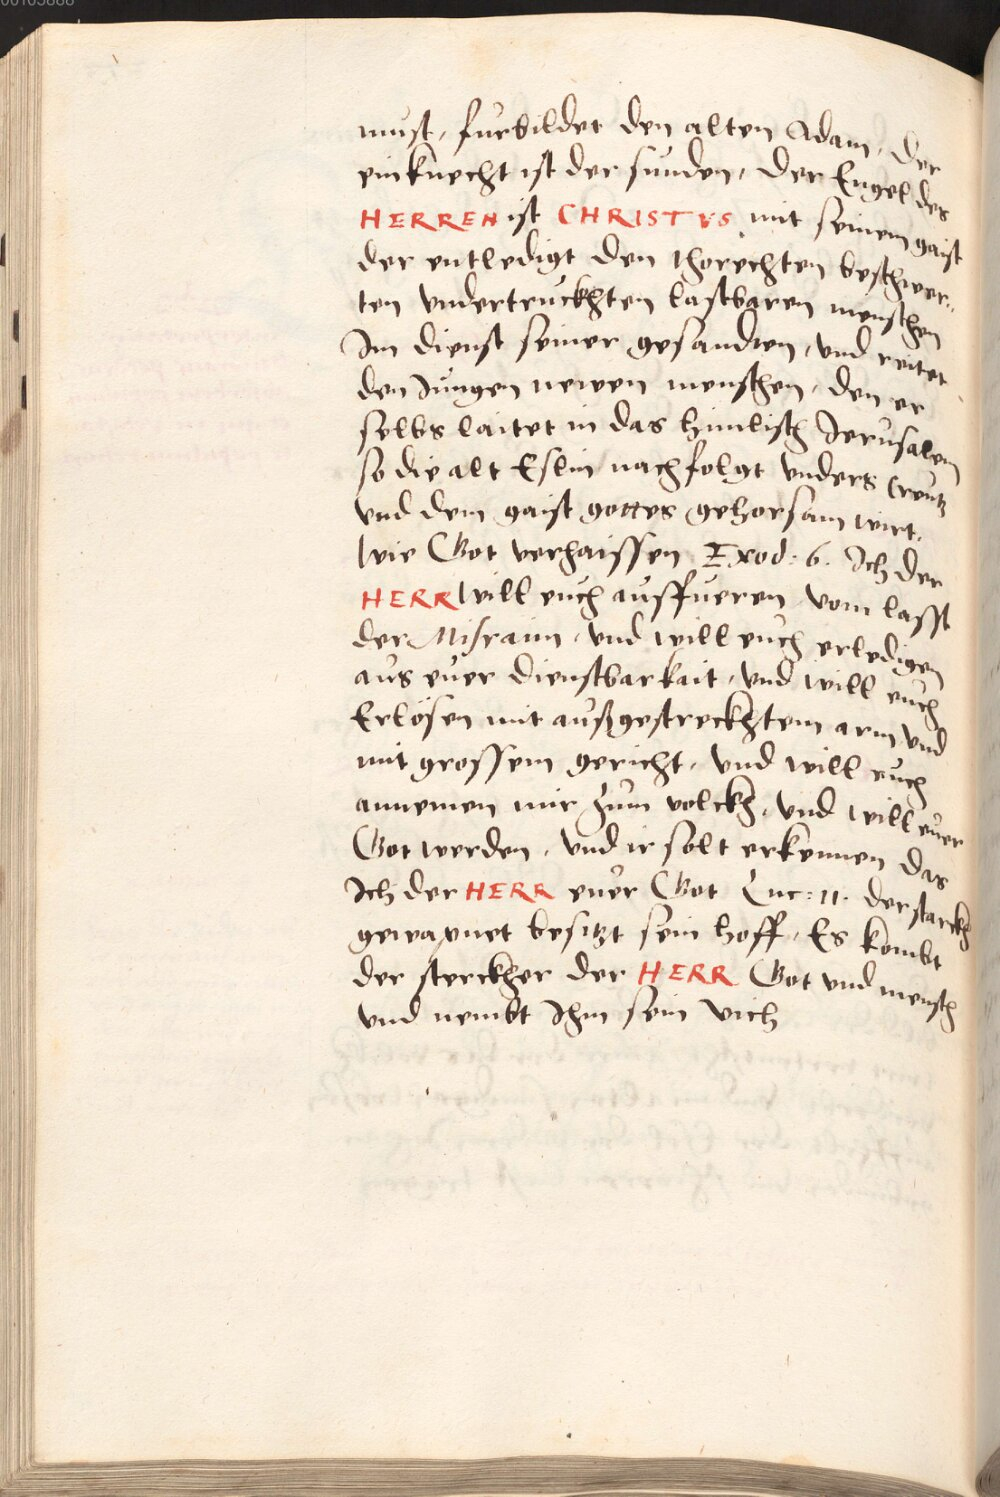 00103888
must, furbildet den alten Adam, der
ein knecht ist der sunden, der Engel des
HERREN ist CHRISTVS mit seinem gaist
der entledigt den thorechten beschwer¬
ten vndertruckhten lastbaren menschen
Im dienst seiner gesandten, vnd reitet
den Jungen newen menschen, den er
selbs laitet in das himlisch Jerusalem
so die alt Eslin nachfolgt vnders Creutz
vnd dem gaist gottes gehorsam wirt.
Wie Got verhaissen Exod: 6. Ich der
HERR will euch aussfueren vom lasst
der Misraim, vnd will euch erledigen
aus euer dienstbarkait, vnd will euch
Erlösen mit außgestreckhtem arm vnd
mit grossem gericht, vnd will euch
annemen mir zum volckh, vnd will euer
Got werden, vnd ir solt erkennen das
Ich der HERR euer Got Luc: 11. der starckh
gewapnet besitzt sein hoff, Es kombt
der sterckher der HERR Got vnd mensch
vnd nembt Ihm sein vich